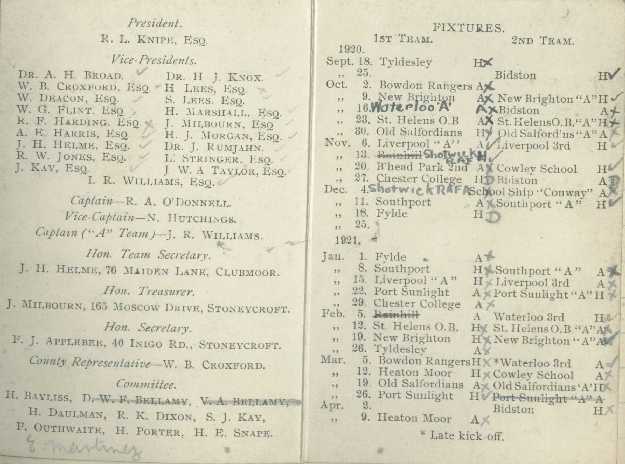 President.
R. L. KNIPE, ESQ.
Vice-Presidents.
DR. A. H. BROAD. DR. H J. KNOX.
W. B. CROXFORD, ESQ. H LEES, ESQ.
W. DEACON, ESQ. S. LEES. ESQ.
W. G. FLINT, ESQ. H. MARSHALL, ESQ.
R. F. HARDING, ESQ. J. MILBOURN, ESQ
A. E. HARRIS, ESQ. H. J. MORGAN, ESQ.
J. H. HELME, ESQ. DR. J. RUMJAHN.
R. W. JONES, ESQ. L. STRINGER, ESQ.
J. KAY, ESQ. J. W. A TAYLOR, ESQ.
I. R. WILLIAMS, ESQ.
Captain—R. A. O'DONNELL.
Vice-Captain—N. HUTCHINGS.
Captain ("A" Team)—J. R. WILLIAMS.
Hon. Team Secretary.
J. H. HELME, 76 MAIDEN LANE, CLUBMOOR.
Hon. Treasurer.
J. MILBOURN, 165 MOSCOW DRIVE, STONEYCROFT.
Hon. Secretary.
F. J. APPLEBEE, 40 INIGO RD., STONEYCROFT.
County Representative—W. B. CROXFORD.
Committee.
H. BAYLISS, D. W. F. BELLAMY, V. A. BELLAMY,
H. DAULMAN, R. K. DIXON, S. J. KAY,
P. OUTHWAITE, H. PORTER, H. E. SNAPE.
E. Martinez
FIXTURES.
1ST TEAM. 2ND TEAM.
1920.
Sept. 18. Tyldesley H X
„ 25. Bidston H
Oct. 2. Bowdon Rangers A X
„ 9. New Brighton A X New Brighton "A" H
„ 16 Waterloo 'A' A X Bidston A
„ 23. St. Helens O.B A X St. Helens O.B. "A" H X
„ 30. Old Salfordians H Old Salford'ns "A" A
Nov. 6. Liverpool "A" H Liverpool 3rd H
„ 13. Rainhill Shotwick RAF H
„ 20. B'head Park 2nd A X Cowley School H
„ 27. Chester College H D Bidston A D
Dec. 4. Shotwick RAF A School Ship "Conway" A X
„ 11. Southport A X Southport "A" H
„ 18. Fylde H D
„ 25.
1921.
Jan. 1. Fylde A X
„ 8. Southport H X Southport "A" A X
„ 15. Liverpool "A" H X Liverpool 3rd A
„ 22. Port Sunlight A X Port Sunlight "A" H X
„ 29. Chester College A X
Feb. 5. Rainhill A Waterloo 3rd H
„ 12. St. Helens O.B. H X St. Helens O.B "A" A
„ 19. New Brighton H X New Brighton "A" A
„ 26. Tyldesley A X
Mar. 5. Bowdon Rangers H X *Waterloo 3rd A
„ 12. Heaton Moor H X Cowley School A X
„ 19. Old Salfordians A X Old Salfordians 'A' H
„ 26. Port Sunlight H Port Sunlight "A" A
Apr. 2. Bidston H X
„ 9. Heaton Moor A X
* Late kick-off.